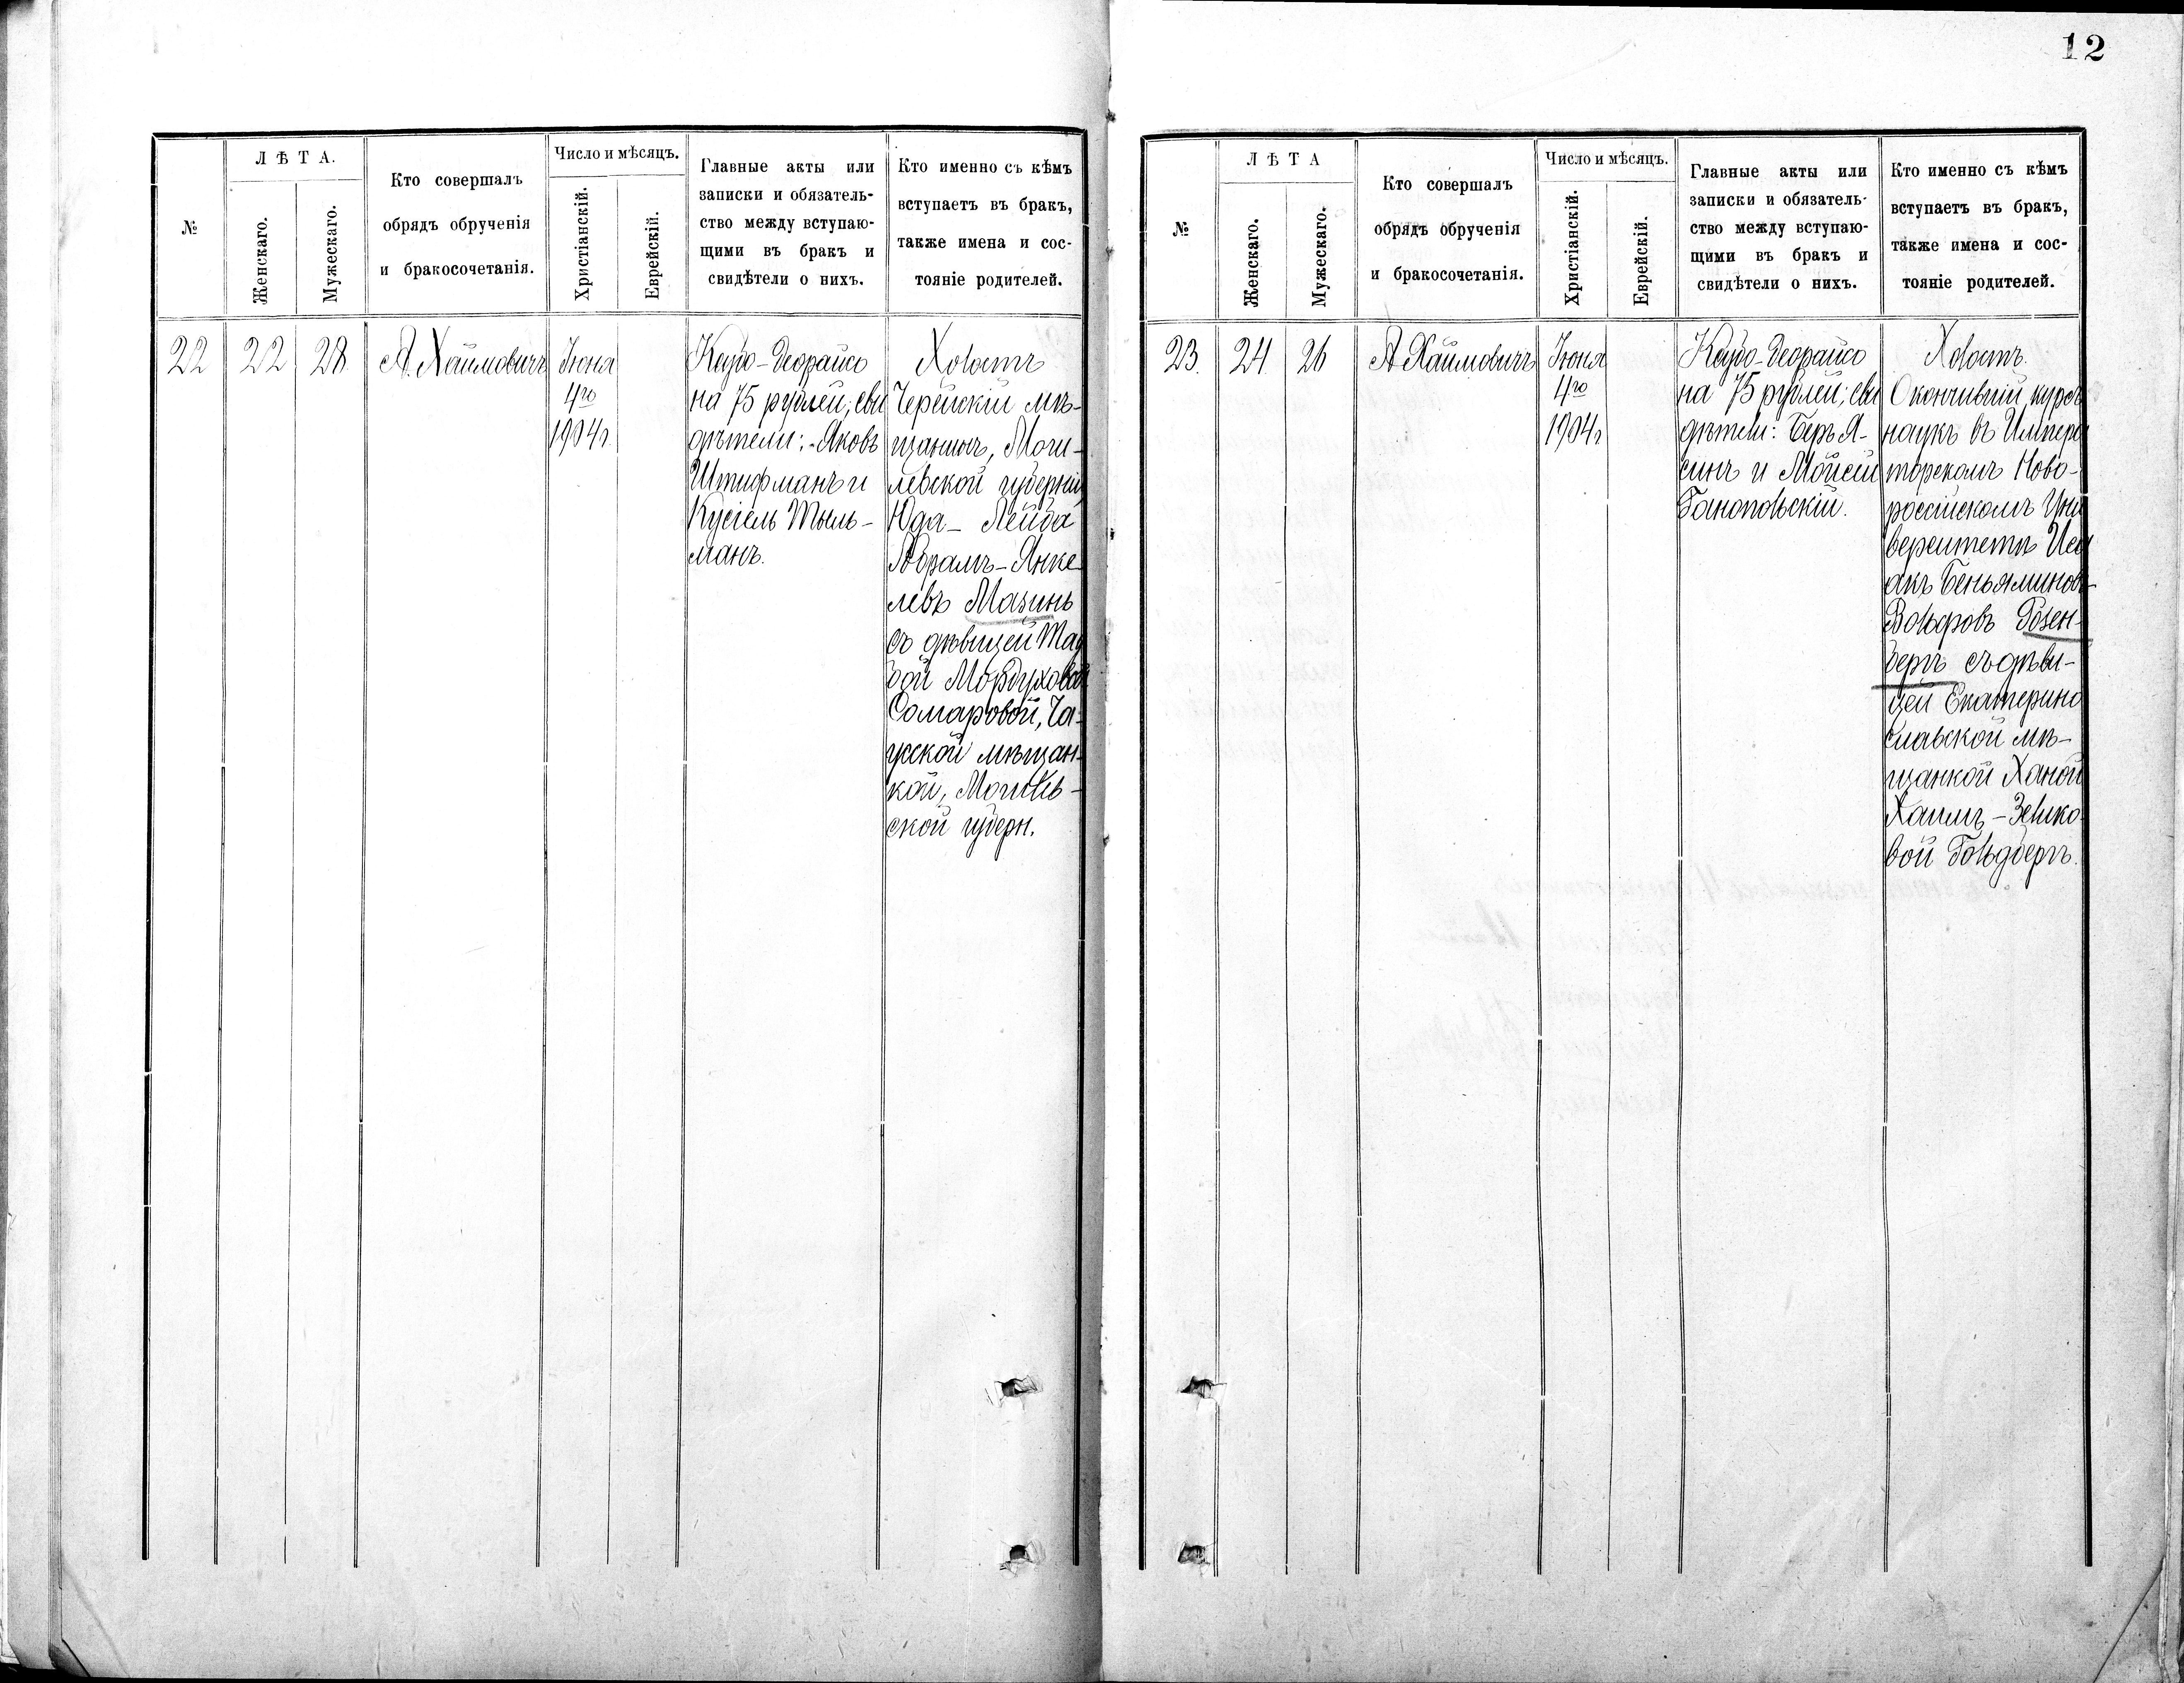 12
№
ЛѢТА.
Женскаго.
Мужескаго.
Кто совершалъ
обрядъ обрученія
и бракосочетанія.
Число и мѣсяцъ.
Христіанскій.
Еврейскій.
Главные акты или
записки и обязатель-
ство между вступаю-
щими въ бракъ и
свидѣтели о нихъ.
Кто именно съ кѣмъ
вступаетъ въ бракъ,
также имена и сос-
тояніе родителей.
22
22
28.
А. Хаймовичъ
Іюня
4го
1904 г.
Кеубо-деорайсо
на 75 рублей; сви
дѣтели: Яковъ
Штифманъ и
Кусіель Тыль-
манъ.
Холостъ
Черейскій мѣ-
щанинъ, Моги-
левской губерніи
Юда-Лейба
Абрамъ-Янке
левъ Мазинъ
съ дѣвицей
Мордуховой
Сомаровой, Ча-
усской мѣщан-
кой, Могилев-
ской губерн.
№
ЛѢТА
Женскаго.
Мужескаго.
Кто совершалъ
обрядъ обрученія
и бракосочетанія.
Число и мѣсяцъ.
Христіанскій.
Еврейскій.
Главные акты или
записки и обязатель-
ство между вступаю-
щими въ бракъ и
свидѣтели о нихъ.
Кто именно съ кѣмъ
вступаетъ въ бракъ,
также имена и сос-
тояніе родителей.
23.
24
26
А Хаймовичъ
Іюня
4го
1904 г
Кеубо-деорайсо
на 75 рублей; сви
дѣтели: Беръ Я-
синъ и Мойсей
Ганопольскій.
Холостъ.
Окончившій курсъ
наукъ въ Импера
торскомъ Ново-
россійскомъ Уни
верситетѣ Иса
акъ Беньяминов-
Вольфовъ Розен-
бергъ съ дѣви-
цей Екатерино
славской мѣ-
щанкой Ханой
Хаимъ-Зелико
вой Гольдбергъ.